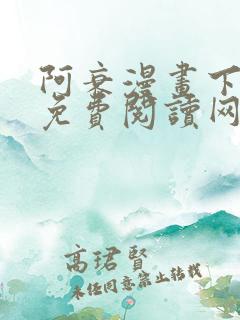 阿衰漫畫下
免費閱讀网
高珺賢
未经同意禁止转载